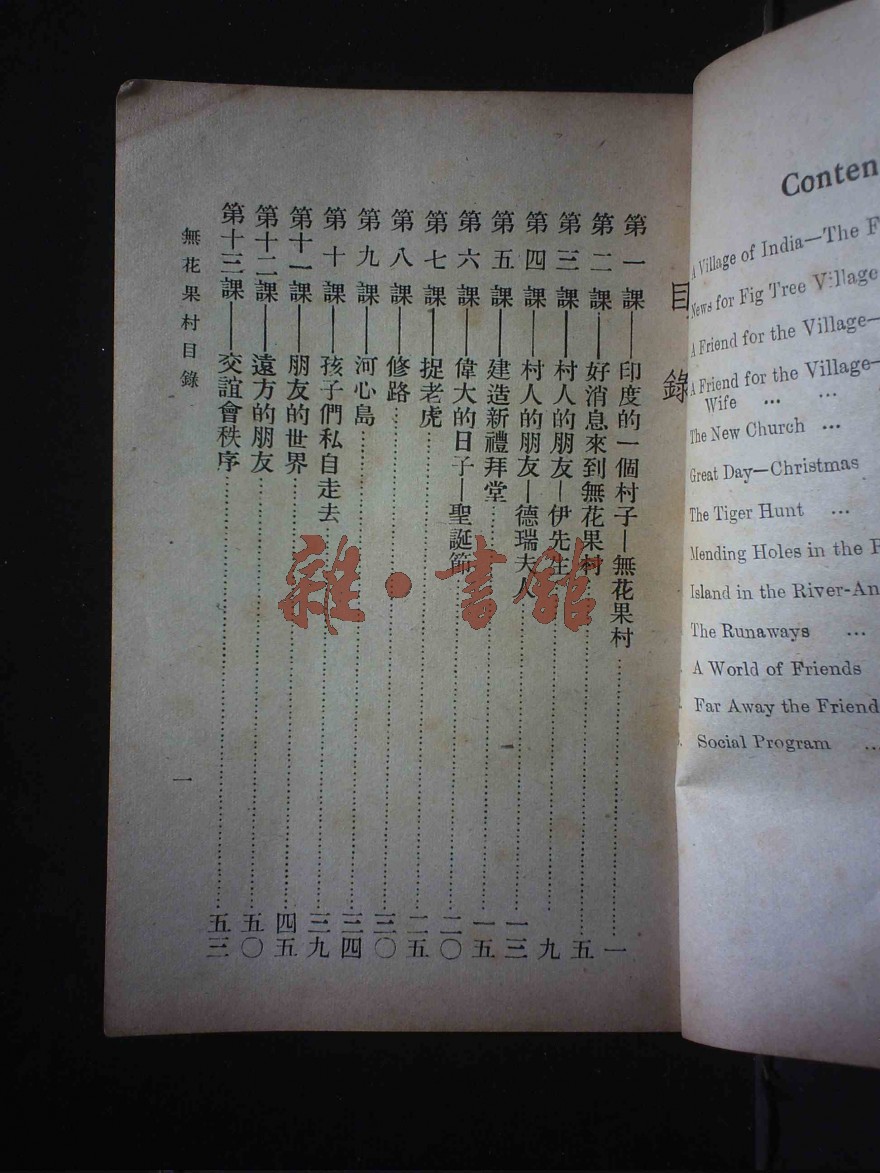 目錄
第一課——印度的一個村子—無花果村……一
第二課——好消息來到無花果村……五
第三課——村人的朋友—伊先生……九
第四課——村人的朋友—德瑞夫人……一三
第五課——建造新禮拜堂……一五
第六課——偉大的日子—聖誕節……二〇
第七課——捉老虎……二五
第八課——修路……三〇
第九課——河心島……三四
第十課——孩子們私自走去……三九
第十一課——朋友的世界……四五
第十二課——遠方的朋友……五〇
第十三課——交誼會秩序……五三
無花果村目錄
一
雜·書館
Conten
A Village of India—The F
News for Fig Tree Village
A Friend for the Village—
A Friend for the Village—
Wife ... ...
The New Church ...
Great Day—Christmas
The Tiger Hunt ...
Mending Holes in the
Island in the River-An
The Runaways ...
A World of Friends
Far Away the Friend
Social Program ...